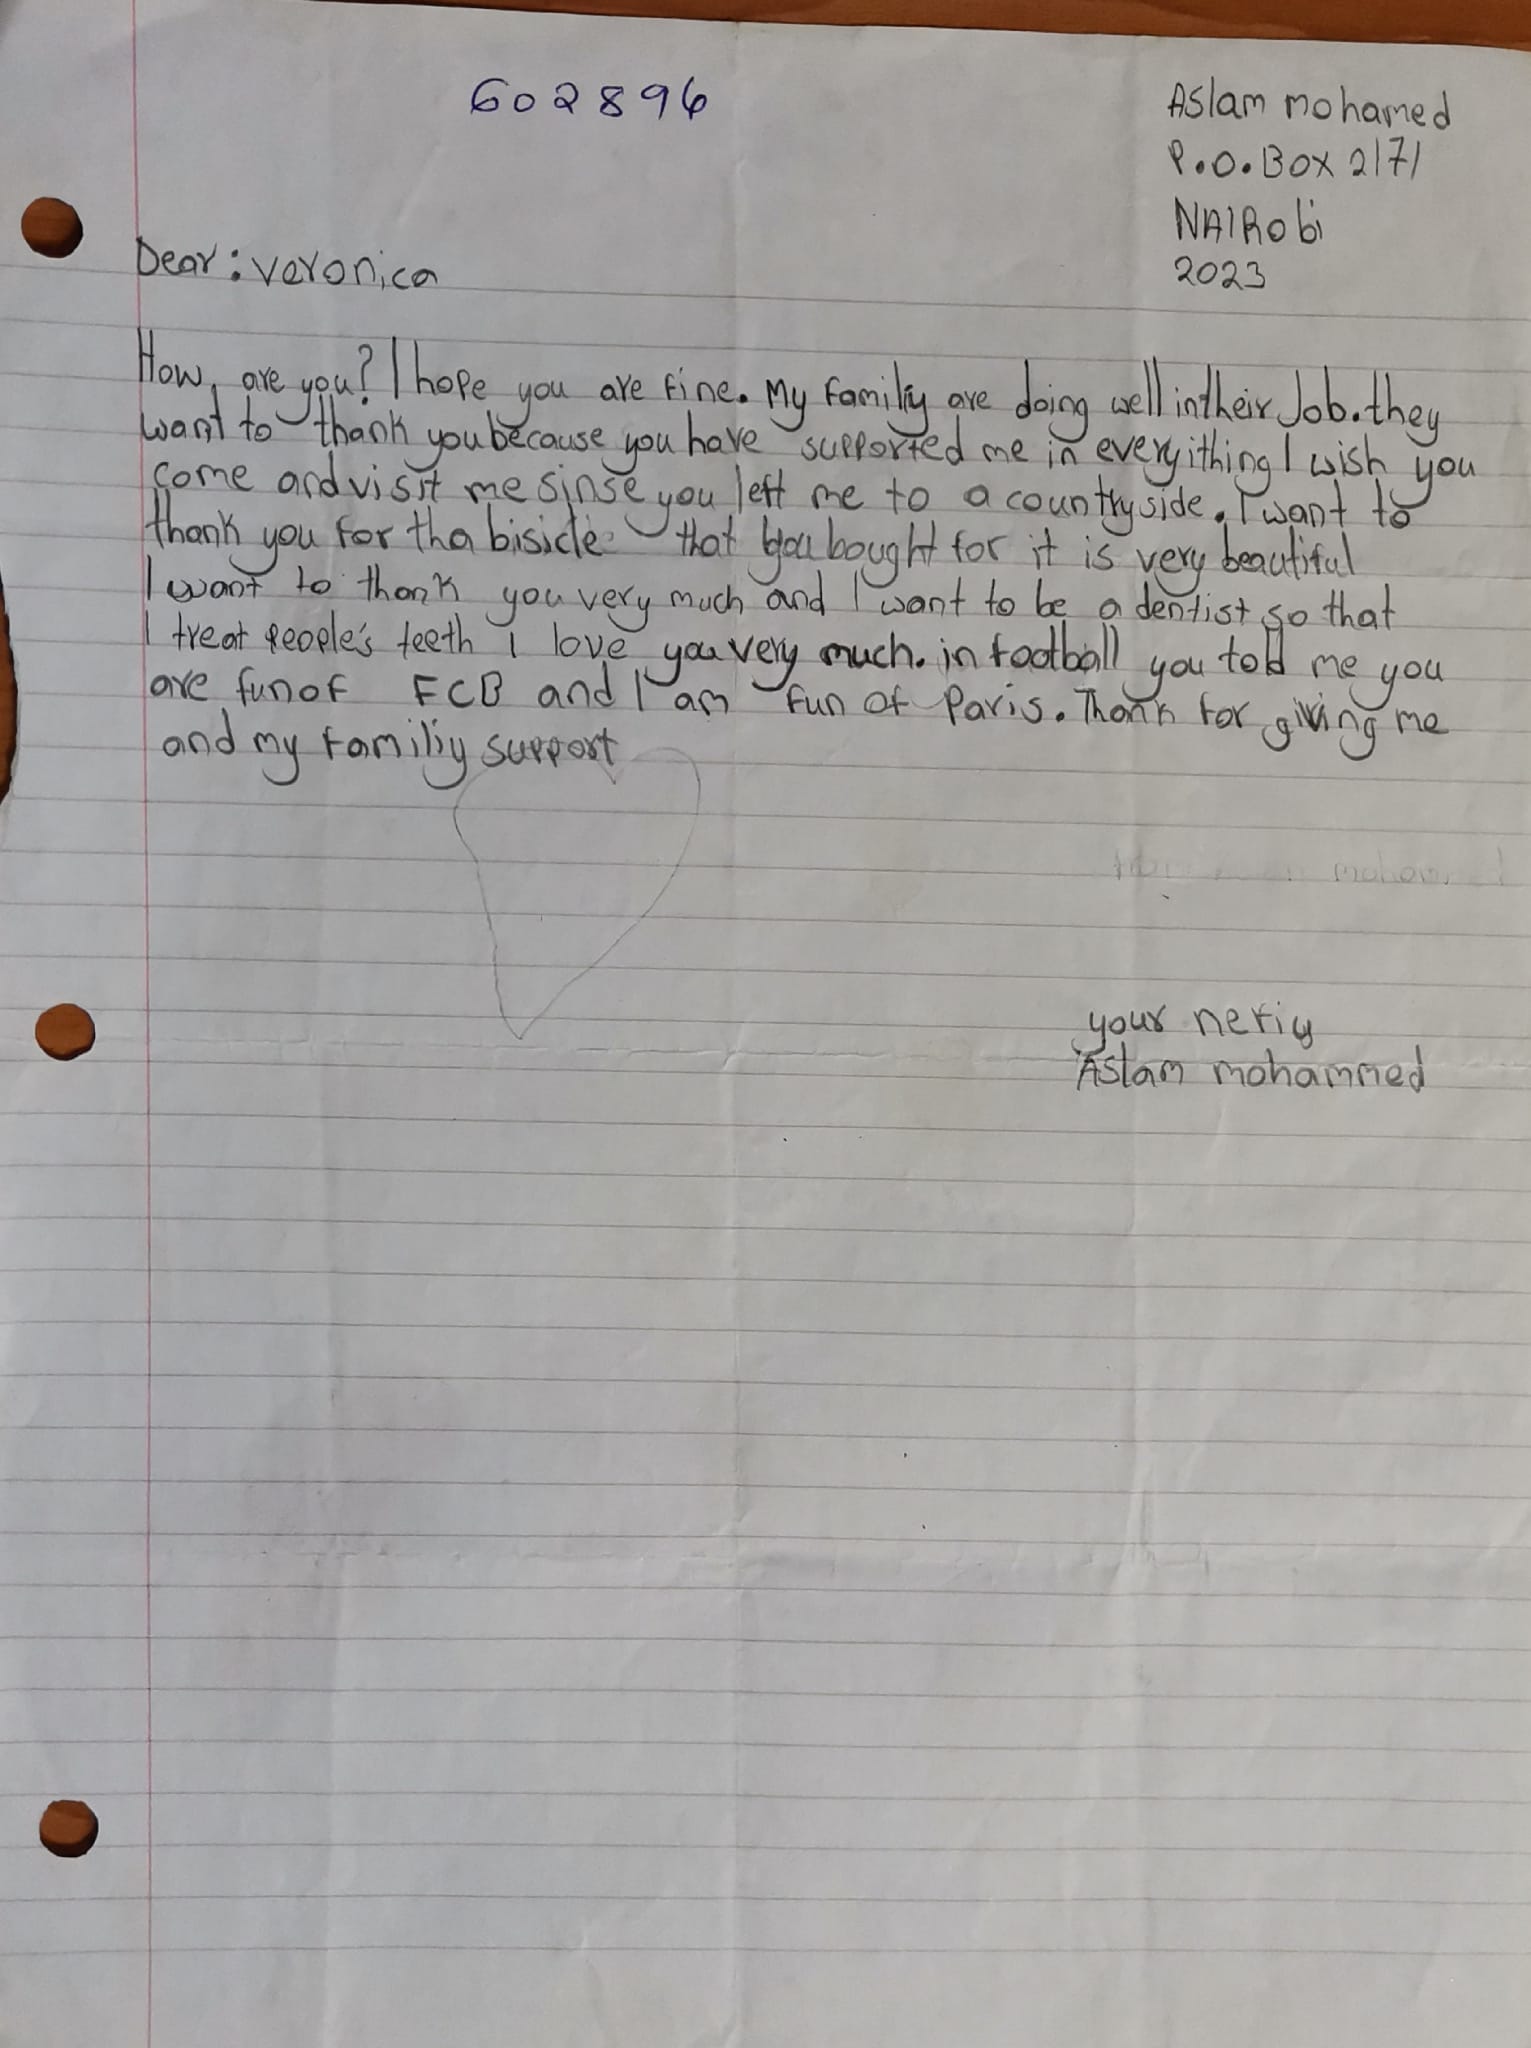 602896
Aslam mohamed
P.O. BOX 2171
NAIRobi
2023
Dear: veronica
How, are you? I hope you are fine. My familiy are doing well intheir Job. they
want to thank you because you have supported me in everyithing I wish you
come and visit me sinse you left me to a countryside. I want to
thank you for tha bisicle that you bought for it is very beautiful
I want to thank you very much and I want to be a dentist so that
I treat people's teeth I love you very much. in football you told me you
are fun of FCB and I am fun of Paris. Thank for giving me
and my familiy support
your
Aslam mohammed